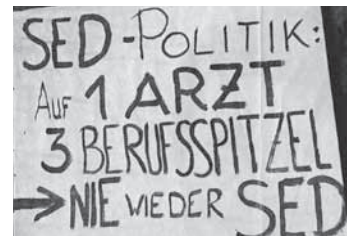 SED-POLITIK:
AUF 1 ARZT
3 BERUFSSPITZEL
→ NIE WIEDER SED